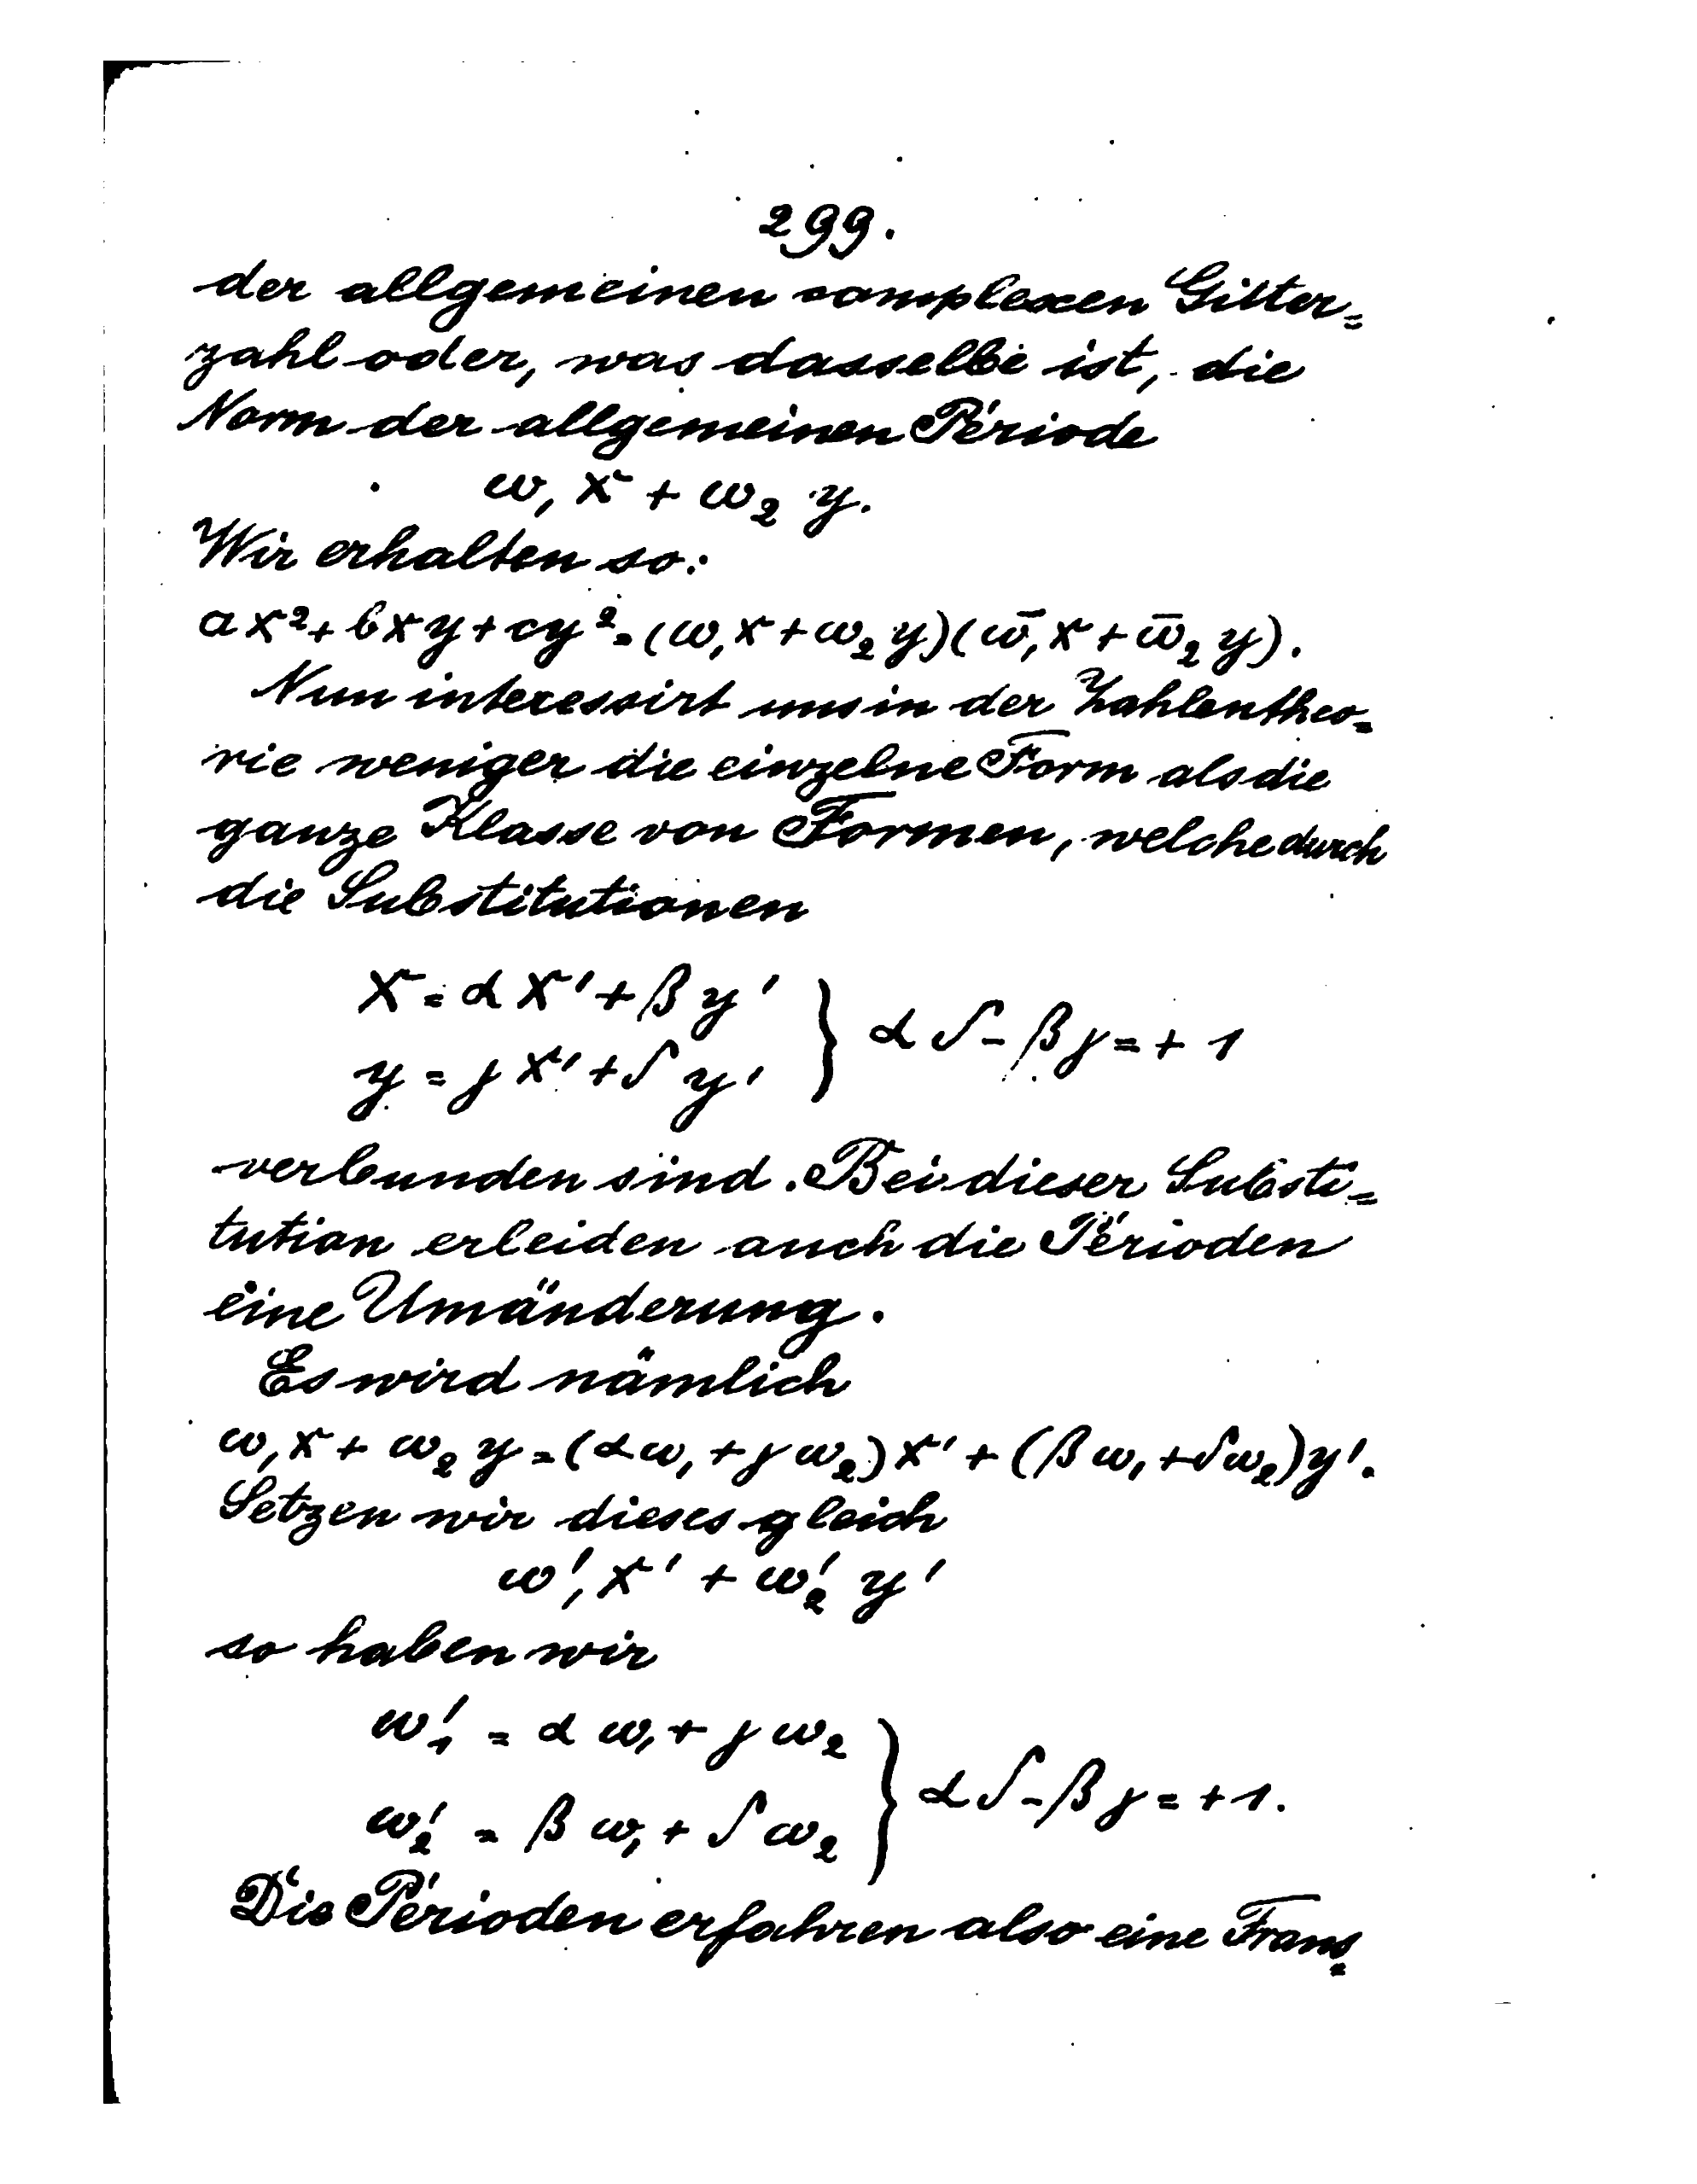 299.
der allgemeinen complexen Gitter=
zahl oder, was dasselbe ist, die
Norm der allgemeinen Periode
ω₁ x + ω₂ y.
Wir erhalten so:
ax² + bxy + cy² = (ω₁x + ω₂y)(ω̄₁x + ω̄₂y).
Nun interessirt uns in der Zahlentheo=
rie weniger die einzelne Form als die
ganze Klasse von Formen, welche durch
die Substitutionen
x = αx' + βy'
y = γx' + δy' } αδ - βγ = + 1
verbunden sind. Bei dieser Substi=
tution erleiden auch die Perioden
eine Umänderung.
Es wird nämlich
ω₁x + ω₂y = (αω₁ + γω₂)x' + (βω₁ + δω₂)y'.
Setzen wir dieses gleich
ω'₁x' + ω'₂y'
so haben wir
ω'₁ = αω₁ + γω₂
ω'₂ = βω₁ + δω₂ } αδ - βγ = +1.
Die Perioden erfahren also eine Trans=